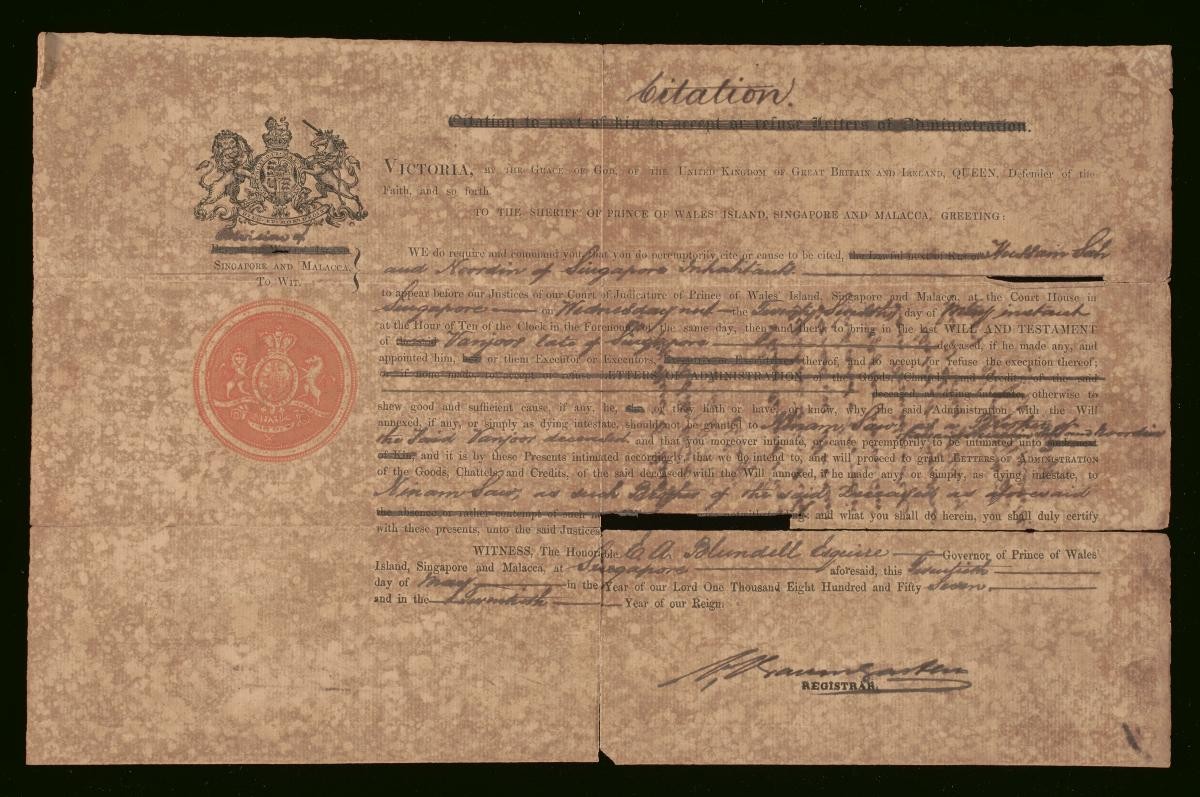 Citation.
Citation to next of kin to accept or refuse Letters of Administration.
VICTORIA, BY THE GRACE OF GOD, OF THE UNITED KINGDOM OF GREAT BRITAIN AND IRELAND, QUEEN, Defender of the
Faith, and so forth
TO THE SHERIFF OF PRINCE OF WALES' ISLAND, SINGAPORE AND MALACCA, GREETING:
Division of
SINGAPORE AND MALACCA.
To Wit.
WE do require and command you, that you do peremptorily cite or cause to be cited, the Lawful next of Kin of Hussain Sah
and Noordin of Singapore Inhabitants
to appear before our Justices of our Court of Judicature of Prince of Wales' Island, Singapore and Malacca, at the Court House in
Singapore on Wednesday next the Twenty day of instant
at the Hour of Ten of the Clock in the Forenoon of the same day, then and there to bring in the last WILL AND TESTAMENT
of Vanjoor late of Singapore deceased, if he made any, and
appointed him, her or them Executor or Executors, thereof, and to accept or refuse the execution thereof;
or if none made to accept or refuse LETTERS OF ADMINISTRATION of the Goods, Chattels and Credits, of the said
deceased, as dying intestate, otherwise to
shew good and sufficient cause, if any, he, she or they hath or have, or know, why the said Administration with the Will
annexed, if any, or simply as dying intestate, should not be granted to Ninam Saw, as a
the Said Vanjoor deceased and that you moreover intimate, or cause peremptorily to be intimated unto Noordin
of kin, and it is by these Presents intimated accordingly, that we do intend to, and will proceed to grant LETTERS OF ADMINISTRATION
of the Goods, Chattels, and Credits, of the said deceased, with the Will annexed, if he made any, or simply, as dying intestate, to
Ninam Saw, as such of the said Deceased as aforesaid
the absence or rather contempt of such and what you shall do herein, you shall duly certify
with these presents, unto the said Justices
WITNESS, The Honorable E A. Blundell Esquire Governor of Prince of Wales'
Island, Singapore and Malacca, at Singapore aforesaid, this twentieth
day of May in the Year of our Lord One Thousand Eight Hundred and Fifty Seven.
and in the twentieth Year of our Reign.
Baumgarten
REGISTRAR.